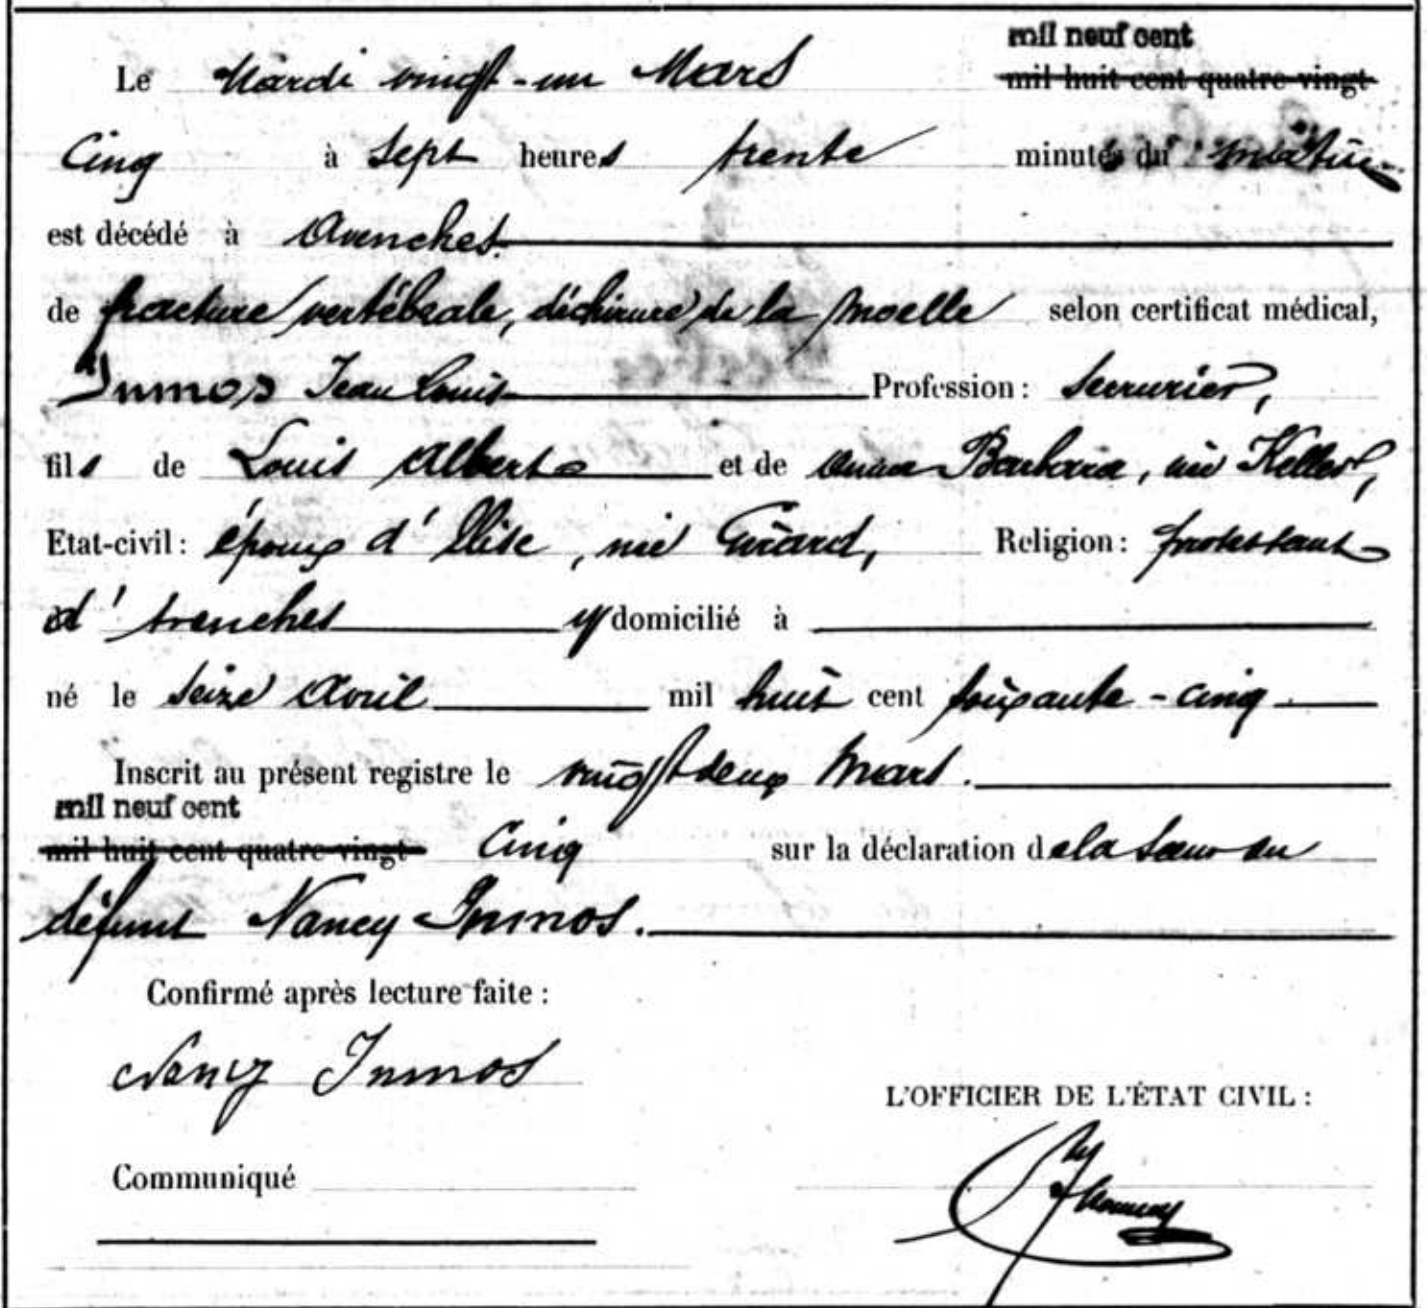 mil neuf cent
Le Mardi vingt-un Mars mil huit cent quatre-vingt
Cinq à Sept heures trente minutes du matin
est décédé à Avenches.
de fracture vertébrale, déchirure de la moelle selon certificat médical,
Inmos Jean Louis Profession : Serrurier,
fils de Louis Albert et de Anna Barbara, née Keller,
Etat-civil : époux d'Elise, née Girard, Religion : protestant
d'Avenches y domicilié à
né le Seize Avril mil huit cent soixante-cinq
Inscrit au présent registre le vingt deux Mars.
mil neuf cent
mil huit cent quatre-vingt Cinq sur la déclaration de la Sœur du
défunt Nancy Inmos.
Confirmé après lecture faite :
Nancy Inmos
L'OFFICIER DE L'ÉTAT CIVIL :
Communiqué